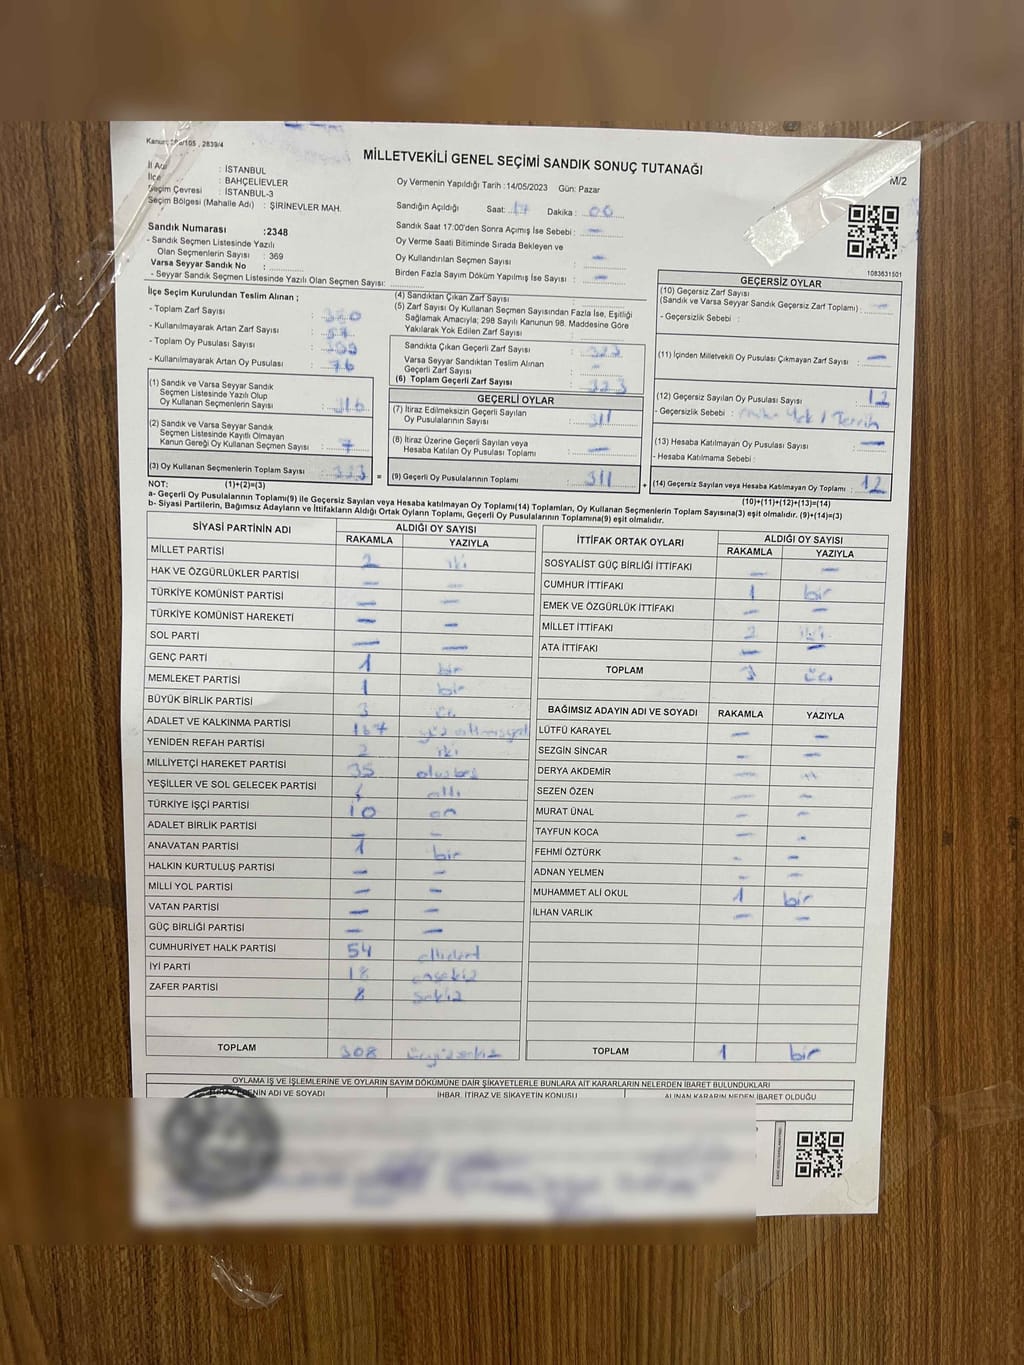 Kanun: 298/105 , 2839/4
MİLLETVEKİLİ GENEL SEÇİMİ SANDIK SONUÇ TUTANAĞI
M/2
İl Adı : İSTANBUL
İlçe : BAHÇELİEVLER
Seçim Çevresi : İSTANBUL-3
Seçim Bölgesi (Mahalle Adı) : ŞİRİNEVLER MAH.
Sandık Numarası :2348
- Sandık Seçmen Listesinde Yazılı
Olan Seçmenlerin Sayısı : 369
Varsa Seyyar Sandık No :
- Seyyar Sandık Seçmen Listesinde Yazılı Olan Seçmen Sayısı:
Oy Vermenin Yapıldığı Tarih :14/05/2023 Gün: Pazar
Sandığın Açıldığı Saat: 17 Dakika : 00
Sandık Saat 17:00'den Sonra Açımış İse Sebebi : -
Oy Verme Saati Bitiminde Sırada Bekleyen ve
Oy Kullandırılan Seçmen Sayısı : -
Birden Fazla Sayım Döküm Yapılmış İse Sayısı : -
1083631501
İlçe Seçim Kurulundan Teslim Alınan ;
- Toplam Zarf Sayısı :
- Kullanılmayarak Artan Zarf Sayısı : 57
- Toplam Oy Pusulası Sayısı :
- Kullanılmayarak Artan Oy Pusulası : 76
(1) Sandık ve Varsa Seyyar Sandık
Seçmen Listesinde Yazılı Olup
Oy Kullanan Seçmenlerin Sayısı : 316
(2) Sandık ve Varsa Seyyar Sandık
Seçmen Listesinde Kayıtlı Olmayan
Kanun Gereği Oy Kullanan Seçmen Sayısı : 7
(3) Oy Kullanan Seçmenlerin Toplam Sayısı : 323
(4) Sandıktan Çıkan Zarf Sayısı :
(5) Zarf Sayısı Oy Kullanan Seçmen Sayısından Fazla İse, Eşitliği
Sağlamak Amacıyla; 298 Sayılı Kanunun 98. Maddesine Göre
Yakılarak Yok Edilen Zarf Sayısı :
Sandıkta Çıkan Geçerli Zarf Sayısı : 323
Varsa Seyyar Sandıktan Teslim Alınan
Geçerli Zarf Sayısı : -
(6) Toplam Geçerli Zarf Sayısı : 323
GEÇERLİ OYLAR
(7) İtiraz Edilmeksizin Geçerli Sayılan
Oy Pusulalarının Sayısı : 311
(8) İtiraz Üzerine Geçerli Sayılan veya
Hesaba Katılan Oy Pusulası Toplamı : -
= (9) Geçerli Oy Pusulalarının Toplamı : 311
GEÇERSİZ OYLAR
(10) Geçersiz Zarf Sayısı
(Sandık ve Varsa Seyyar Sandık Geçersiz Zarf Toplamı) : -
- Geçersizlik Sebebi :
(11) İçinden Milletvekili Oy Pusulası Çıkmayan Zarf Sayısı : -
(12) Geçersiz Sayılan Oy Pusulası Sayısı : 12
- Geçersizlik Sebebi :
(13) Hesaba Katılmayan Oy Pusulası Sayısı : -
- Hesaba Katılmama Sebebi :
+ (14) Geçersiz Sayılan veya Hesaba Katılmayan Oy Toplamı : 12
NOT: (1)+(2)=(3)
(10)+(11)+(12)+(13)=(14)
a- Geçerli Oy Pusulalarının Toplamı(9) ile Geçersiz Sayılan veya Hesaba katılmayan Oy Toplamı(14) Toplamları, Oy Kullanan Seçmenlerin Toplam Sayısına(3) eşit olmalıdır. (9)+(14)=(3)
b- Siyasi Partilerin, Bağımsız Adayların ve İttifakların Aldığı Ortak Oyların Toplamı, Geçerli Oy Pusulalarının Toplamına(9) eşit olmalıdır.
SİYASİ PARTİNİN ADI ALDIĞI OY SAYISI
RAKAMLA YAZIYLA
MİLLET PARTİSİ 2 iki
HAK VE ÖZGÜRLÜKLER PARTİSİ - -
TÜRKİYE KOMÜNİST PARTİSİ - -
TÜRKİYE KOMÜNİST HAREKETİ - -
SOL PARTİ - -
GENÇ PARTİ 1 bir
MEMLEKET PARTİSİ 1 bir
BÜYÜK BİRLİK PARTİSİ 3 üç
ADALET VE KALKINMA PARTİSİ 167 yüz altmışyedi
YENİDEN REFAH PARTİSİ 2 iki
MİLLİYETÇİ HAREKET PARTİSİ 35 otuzbeş
YEŞİLLER VE SOL GELECEK PARTİSİ 6 altı
TÜRKİYE İŞÇİ PARTİSİ 10 on
ADALET BİRLİK PARTİSİ - -
ANAVATAN PARTİSİ 1 bir
HALKIN KURTULUŞ PARTİSİ - -
MİLLİ YOL PARTİSİ - -
VATAN PARTİSİ - -
GÜÇ BİRLİĞİ PARTİSİ - -
CUMHURİYET HALK PARTİSİ 54 ellidört
İYİ PARTİ 18 onsekiz
ZAFER PARTİSİ 8 sekiz
TOPLAM 308 üçyüzsekiz
İTTİFAK ORTAK OYLARI ALDIĞI OY SAYISI
RAKAMLA YAZIYLA
SOSYALİST GÜÇ BİRLİĞİ İTTİFAKI - -
CUMHUR İTTİFAKI 1 bir
EMEK VE ÖZGÜRLÜK İTTİFAKI - -
MİLLET İTTİFAKI 2 iki
ATA İTTİFAKI - -
TOPLAM 3 üç
BAĞIMSIZ ADAYIN ADI VE SOYADI RAKAMLA YAZIYLA
LÜTFÜ KARAYEL - -
SEZGİN SİNCAR - -
DERYA AKDEMİR - -
SEZEN ÖZEN - -
MURAT ÜNAL - -
TAYFUN KOCA - -
FEHMİ ÖZTÜRK - -
ADNAN YELMEN - -
MUHAMMET ALİ OKUL 1 bir
İLHAN VARLIK - -
TOPLAM 1 bir
OYLAMA İŞ VE İŞLEMLERİNE VE OYLARIN SAYIM DÖKÜMÜNE DAİR ŞİKAYETLERLE BUNLARA AİT KARARLARIN NELERDEN İBARET BULUNDUKLARI
ADI VE SOYADI İHBAR, İTİRAZ VE ŞİKAYETİN KONUSU ALINAN KARARIN NEDEN İBARET OLDUĞU